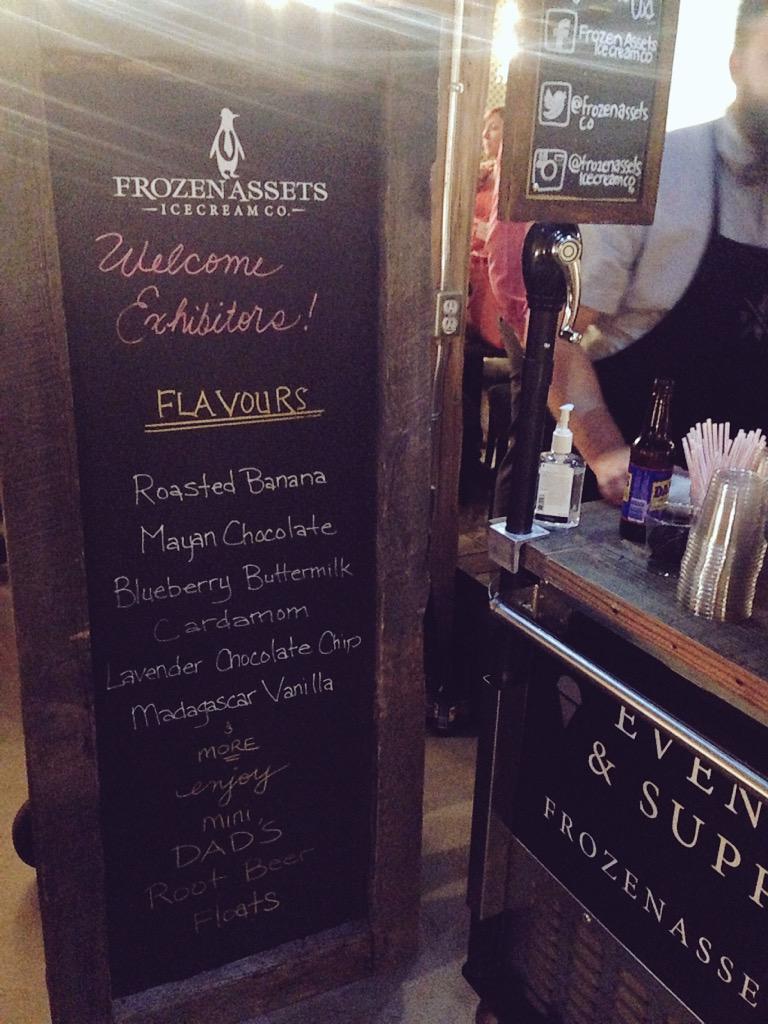 FROZENASSETS
ICECREAM CO.
Welcome
Exhibitors!
FLAVOURS
Roasted Banana
Mayan Chocolate
Blueberry Buttermilk
Cardamom
Lavender Chocolate Chip
Madagascar Vanilla
&
MORE
enjoy
mini
DAD'S
Root Beer
Floats
Frozen Assets
Icecreamco
@frozenassets
Co
@frozenassets
icecreamco
EVEN
& SUPP
FROZENASSE